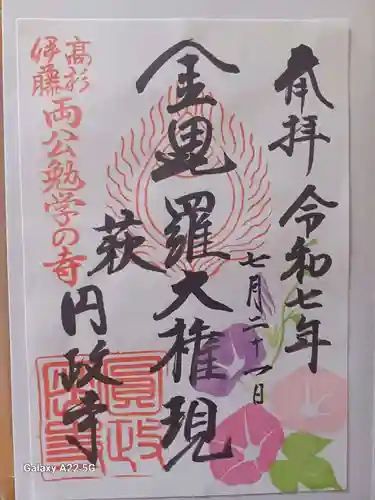 奉拝
令和七年
七月二十一日
金毘羅大権現
萩
円政寺
高杉
伊藤
両公勉学の寺
Galaxy A22 5G